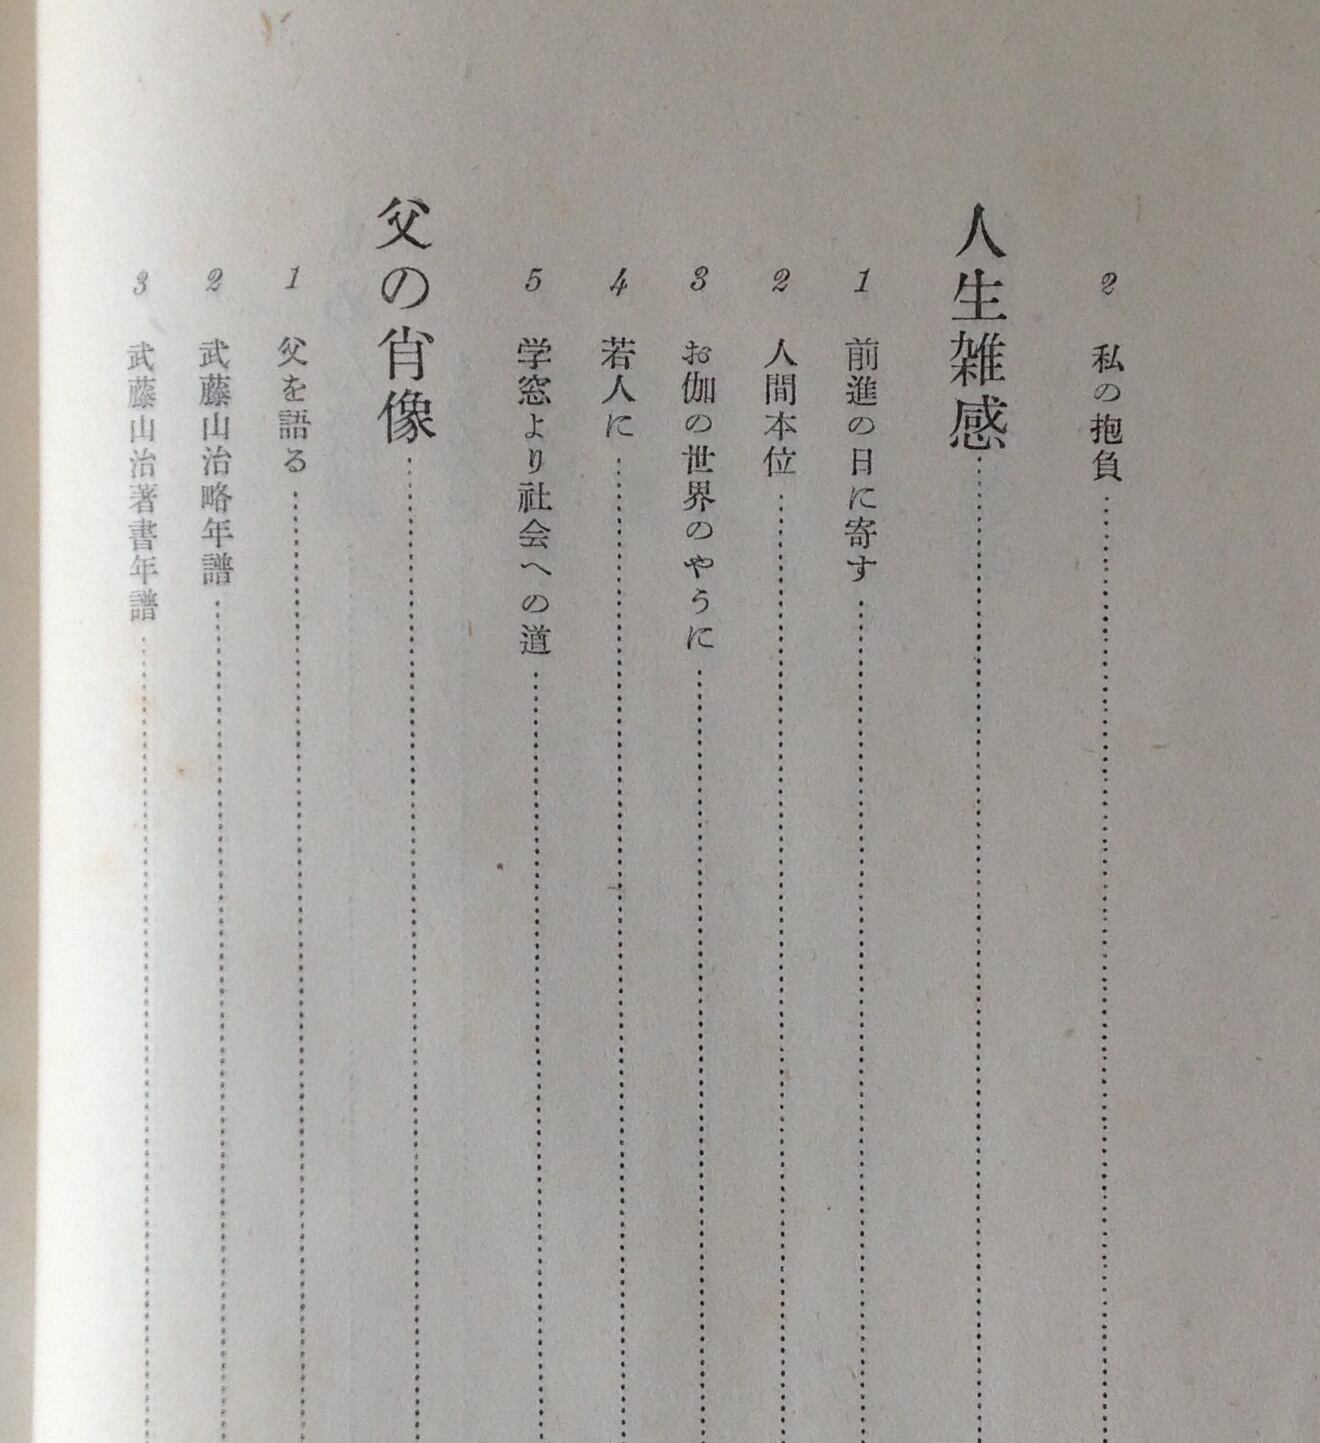 2 私の抱負
人生雑感
1 前進の日に寄す
2 人間本位
3 お伽の世界のやうに
4 若人に
5 学窓より社会への道
父の肖像
1 父を語る
2 武藤山治略年譜
3 武藤山治著書年譜